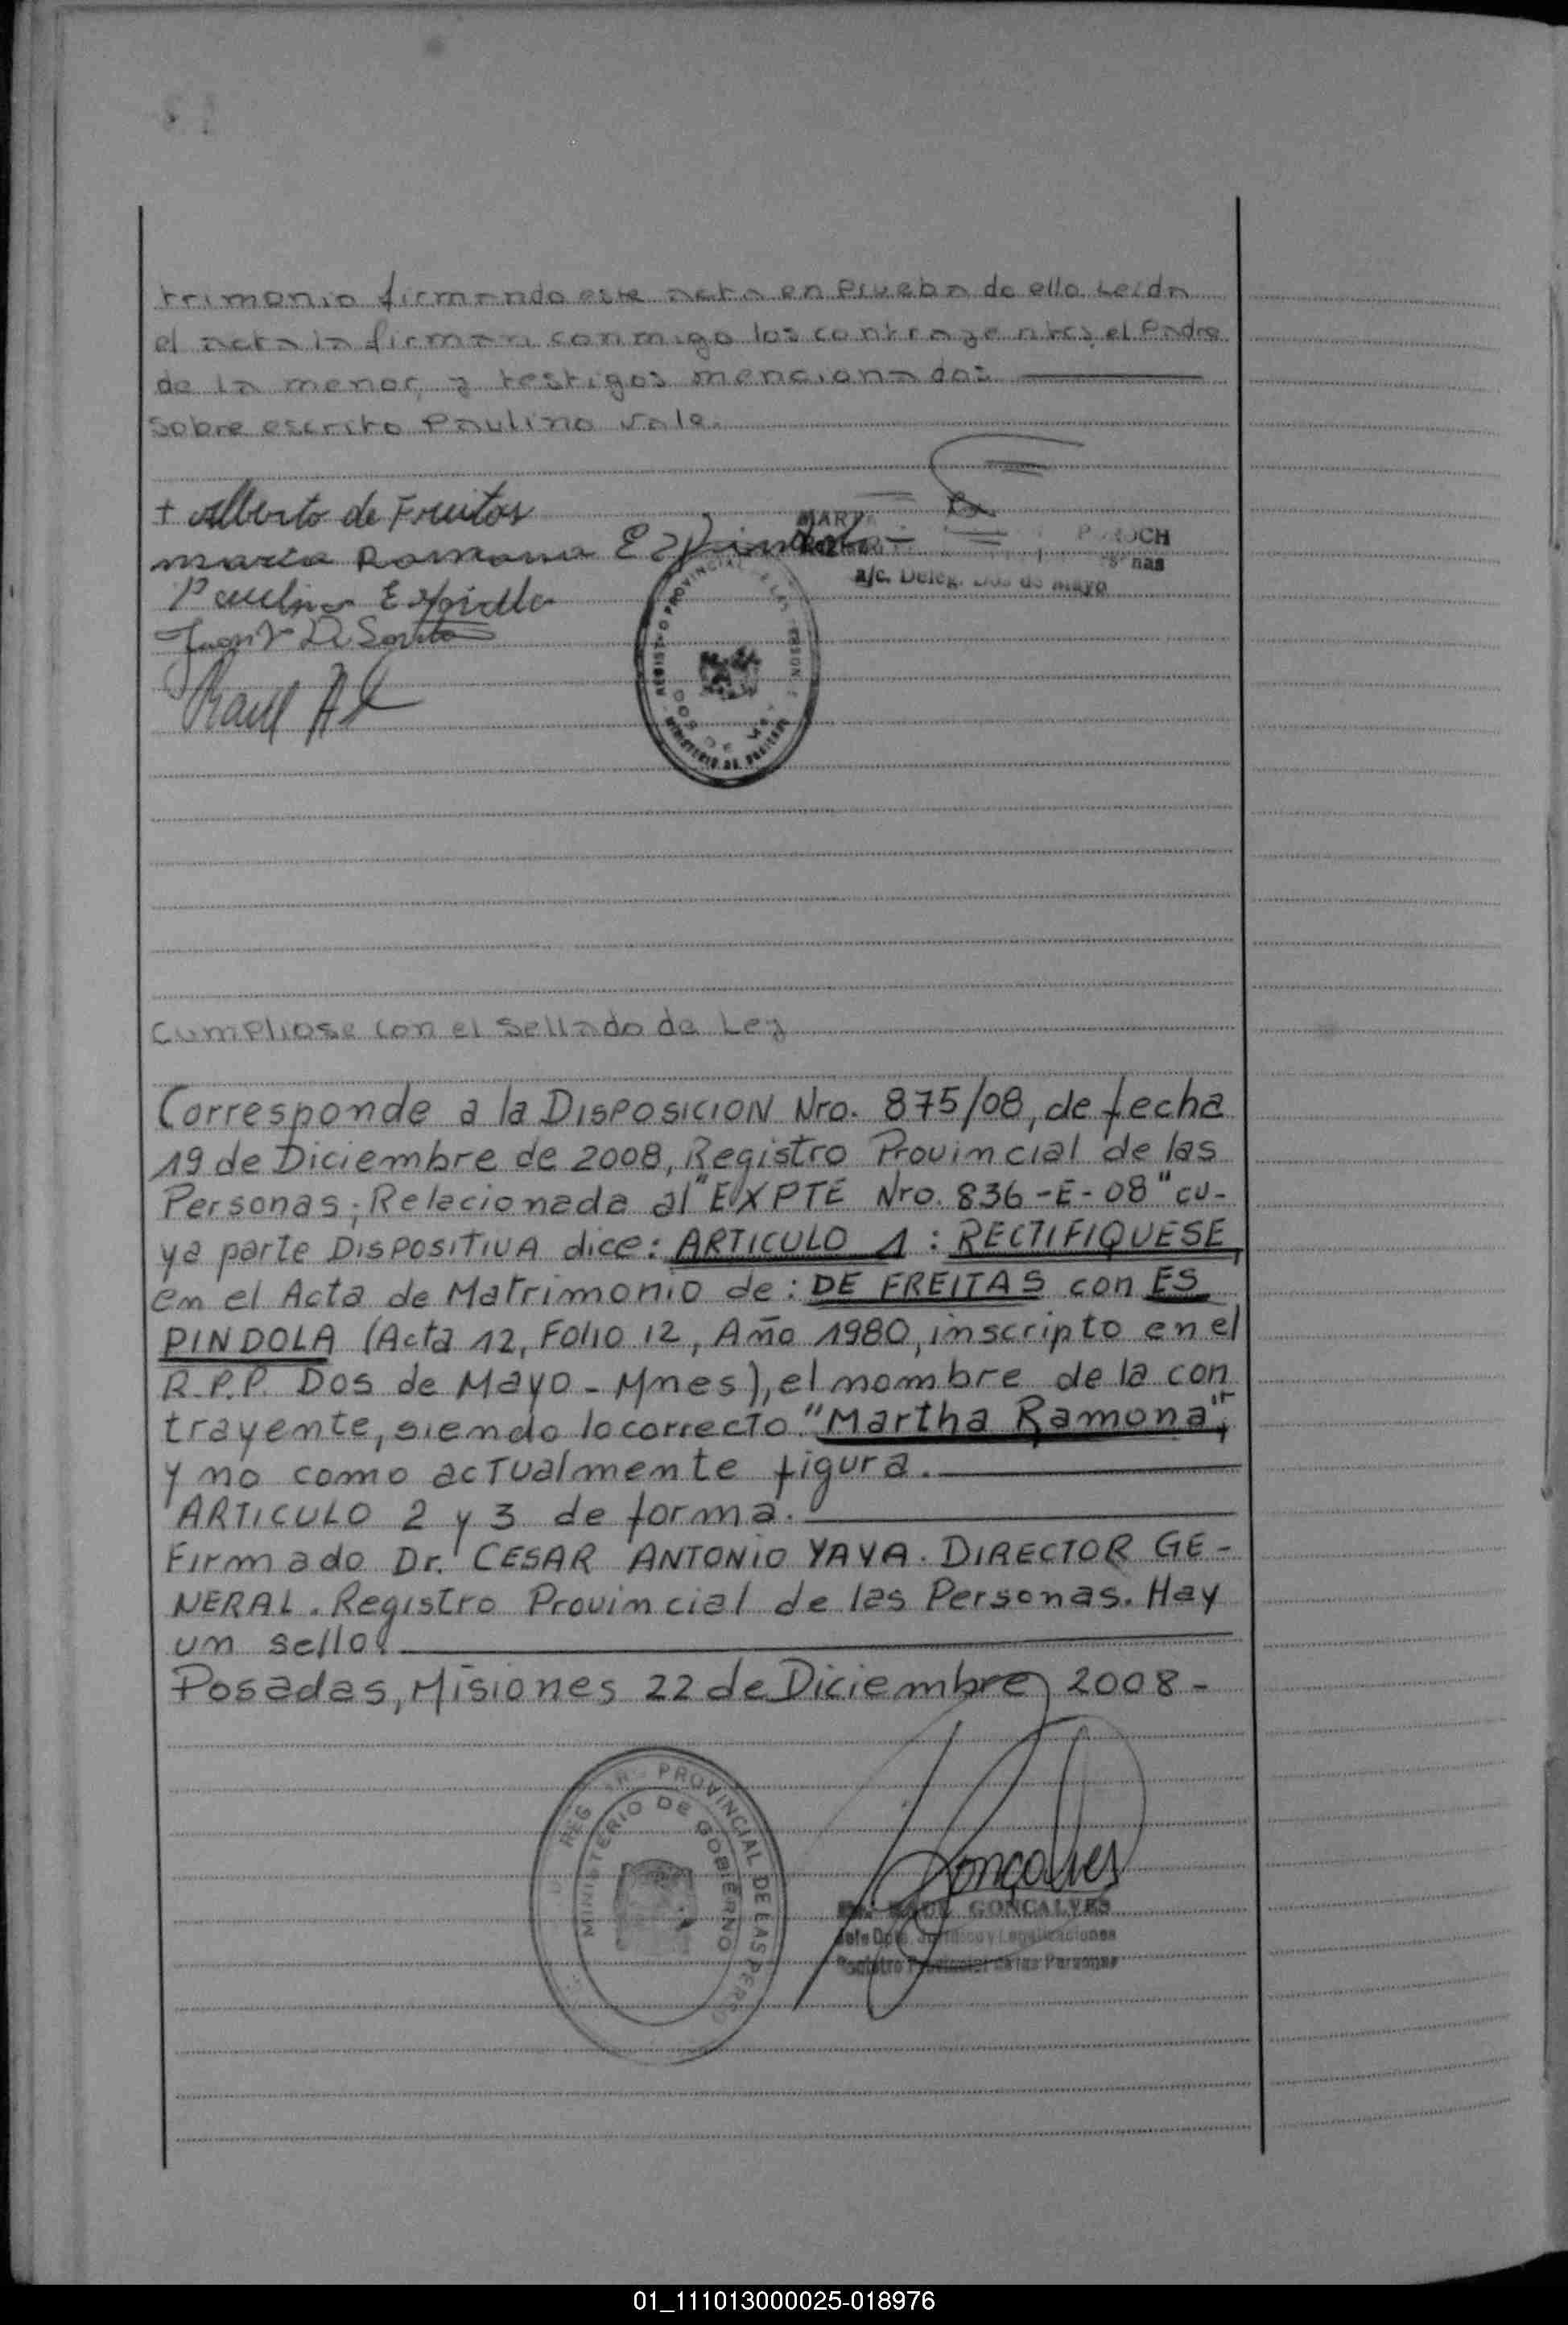 trimonio firmando este acta en prueba de ello Leida
el acta la firman conmigo los contrayentes, el Padre
de la menor, y testigos mencionados
Sobre escrito Paulino vale.
+ Alberto de Freitas
maria Ramona Espindola
Paulino Espindola
Raul A
MART
a/c. Deleg. Dos de Mayo
REGISTRO PROVINCIAL DE LAS PERSONAS
DOS DE MAYO
MINISTERIO DE
Cumpliose con el Sellado de Ley
Corresponde a la DISPOSICION Nro. 875/08, de fecha
19 de Diciembre de 2008, Registro Provincial de las
Personas; Relacionada al "EXPTE Nro. 836-E-08" cu-
ya parte DISPOSITIVA dice: ARTICULO 1: RECTIFIQUESE,
en el Acta de Matrimonio de: DE FREITAS con ES
PINDOLA (Acta 12, Folio 12, Año 1980, inscripto en el
R.P.P. Dos de Mayo - Mnes), el nombre de la con
trayente, siendo lo correcto "Martha Ramona",
y no como actualmente figura.
ARTICULO 2 y 3 de forma.
Firmado Dr. CESAR ANTONIO YAYA. DIRECTOR GE-
NERAL. Registro Provincial de las Personas. Hay
un sello.
Posadas, Misiones 22 de Diciembre 2008-
PROVINCIAL DE LAS PERSO
MINISTERIO DE GOBIERNO
Goncalves
GONCALVES
Jefe Dpto. Jurídico y Legalizaciones
Registro Provincial de las Personas
01_111013000025-018976